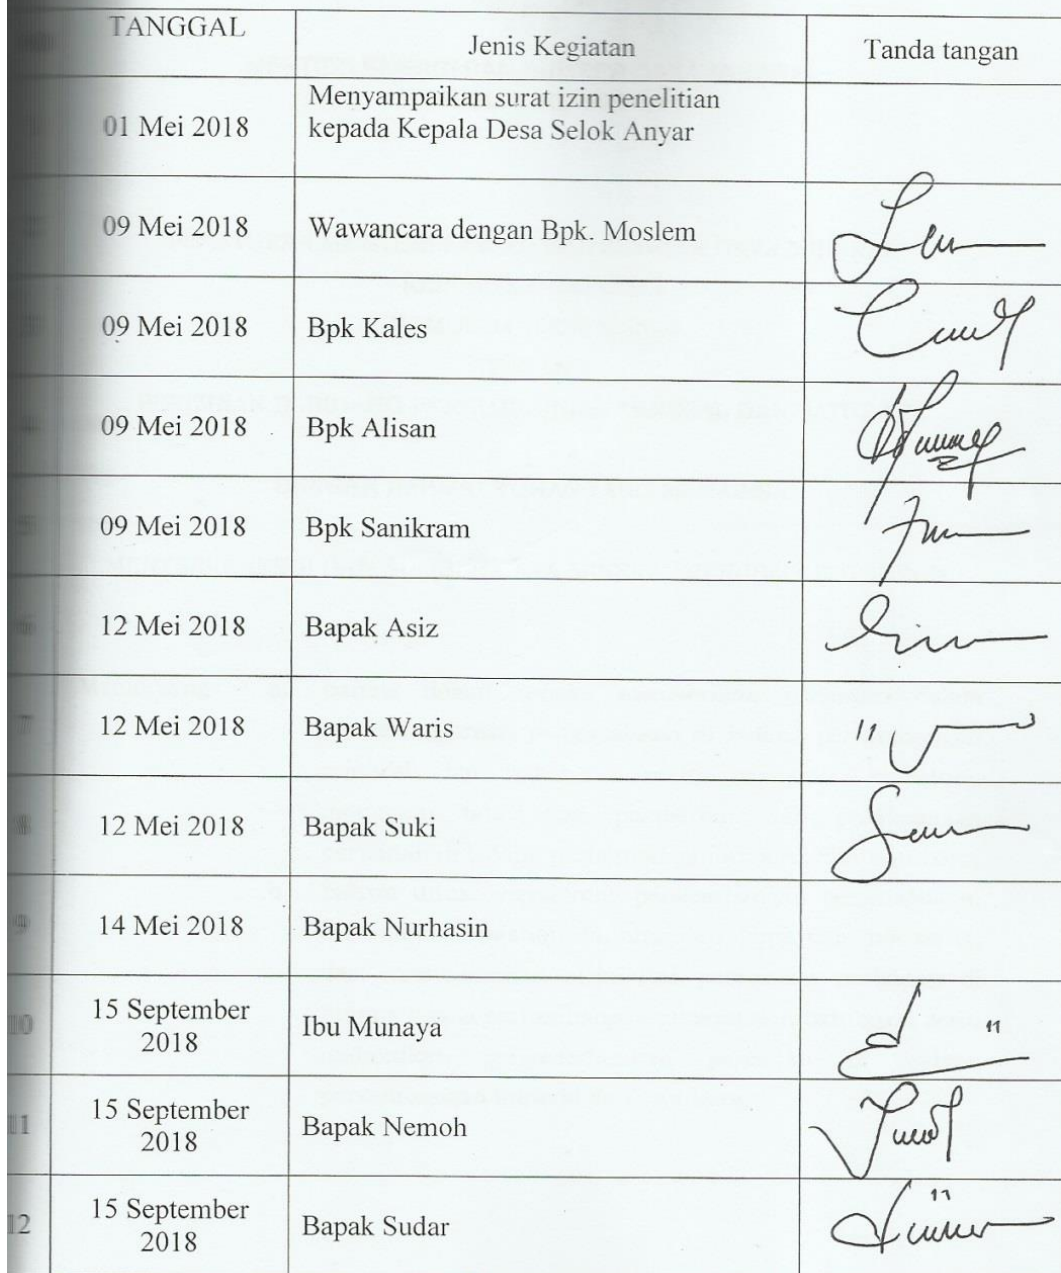 TANGGAL
Jenis Kegiatan
Tanda tangan
01 Mei 2018
Menyampaikan surat izin penelitian
kepada Kepala Desa Selok Anyar
09 Mei 2018
Wawancara dengan Bpk. Moslem
09 Mei 2018
Bpk Kales
09 Mei 2018
Bpk Alisan
09 Mei 2018
Bpk Sanikram
6
12 Mei 2018
Bapak Asiz
7
12 Mei 2018
Bapak Waris
8
12 Mei 2018
Bapak Suki
9
14 Mei 2018
Bapak Nurhasin
10
15 September
2018
Ibu Munaya
11
15 September
2018
Bapak Nemoh
12
15 September
2018
Bapak Sudar